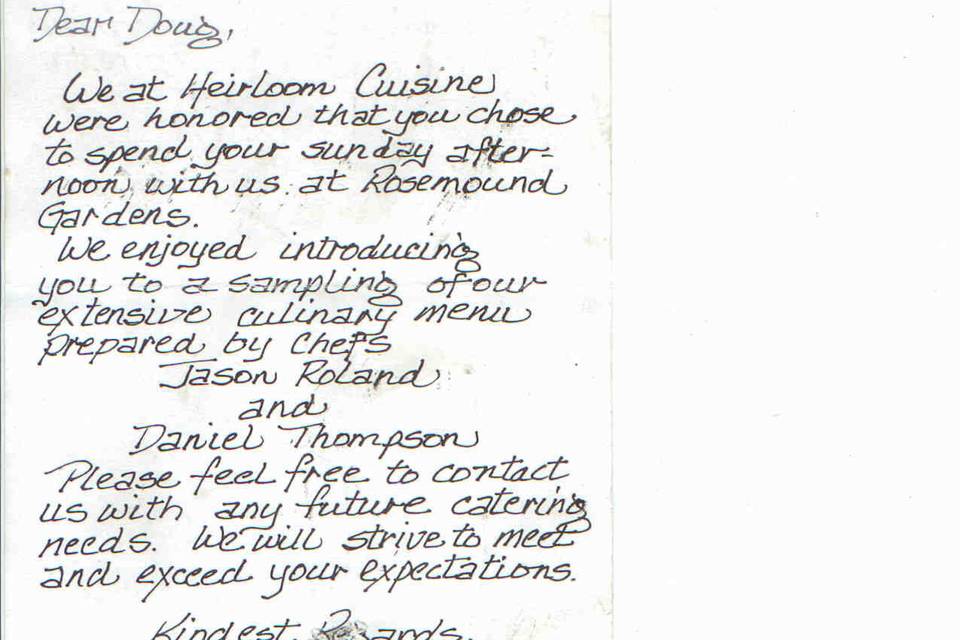 Dear Doug,
We at Heirloom Cuisine
were honored that you chose
to spend your sunday after-
noon with us at Rosemound
Gardens.
We enjoyed introducing
you to a sampling of our
extensive culinary menu
prepared by Chefs
Jason Roland
and
Daniel Thompson
Please feel free to contact
us with any future catering
needs. We will strive to meet
and exceed your expectations.
Kindest Regards,